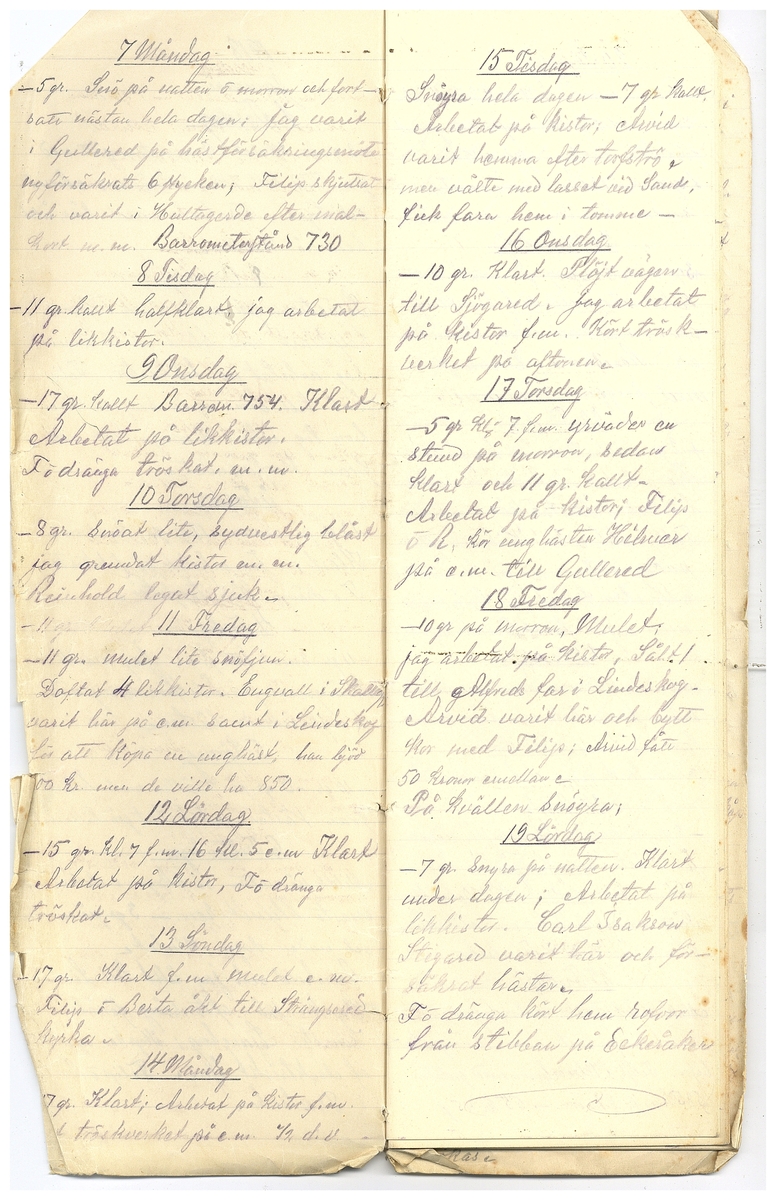 7 Måndag
—5 gr. Snö på natten o morron och fort—
satt nästan hela dagen; Jag varit
i Gullered på hästförsäkringsmöte
nyförsäkrats 6 stycken; Filip skjutsat
och varit i Hultagerde efter mal—
kort m. m. Barrometerstånd 730
8 Tisdag
—11 gr. kallt halfklart, jag arbetat
på likkistor.
9 Onsdag
—17 gr. kallt Barrom. 754. Klart
Arbetat på likkistor.
F ö dränga tröskat. m. m.
10 Torsdag
—8 gr. Snöat lite, sydvestlig blåst
jag grundat kistor m. m.
Reinhold legat sjuk.
—11 gr 11 Fredag
—11 gr. mulet lite snöfjun.
Doftat 4 likkistor. Engvall i
varit här på e.m. samt i Lindeskog
för att köpa en unghäst, han bjöd
00 kr. men de ville ha 850.
12 Lördag
—15 gr. kl. 7 f.m. 16 kl. 5 e.m Klart
Arbetat på kistor, F ö dränga
tröskat.
13 Söndag
—17 gr. Klart f.m mulet e.m.
Filip ö Berta åkt till Strängsered
kyrka.
14 Måndag
7 gr. Klart; Arbetat på kistor f.m.
tröskverket på e.m. 1/2 d. v.
15 Tisdag
Snöyra hela dagen —7 gr kallt.
Arbetat på kistor; Arvid
varit hemma efter torfströ,
men välte med lasset vid Sand,
fick fara hem i tomme —
16 Onsdag
—10 gr. Klart. Plöjt vägen
till Sjögared. Jag arbetat
på kistor f.m. Kört trösk—
verket på aftonen.
17 Torsdag
—5 gr kl. 7 f.m. yrväder en
stund på morron, sedan
klart och 11 gr. kallt—
Arbetat på kistor; Filip
ö R. kör unghästen Hilmer
på e.m. till Gullered
18 Fredag
—10 gr på morron, Mulet;
jag arbetat på kistor, Sålt 1
till Alfreds far i Lindeskog.
Arvid varit här och bytt
kor med Filip; Arvid fått
50 kronor emellan
På kvällen Snöyra;
19 Lördag
—7 gr. Snyra på natten. Klart
under dagen; Arbetat på
likkistor. Carl Isakson
Stigared varit här och för—
säkrat hästar.
F ö dränga kört hem
från stibban på Eckesåker